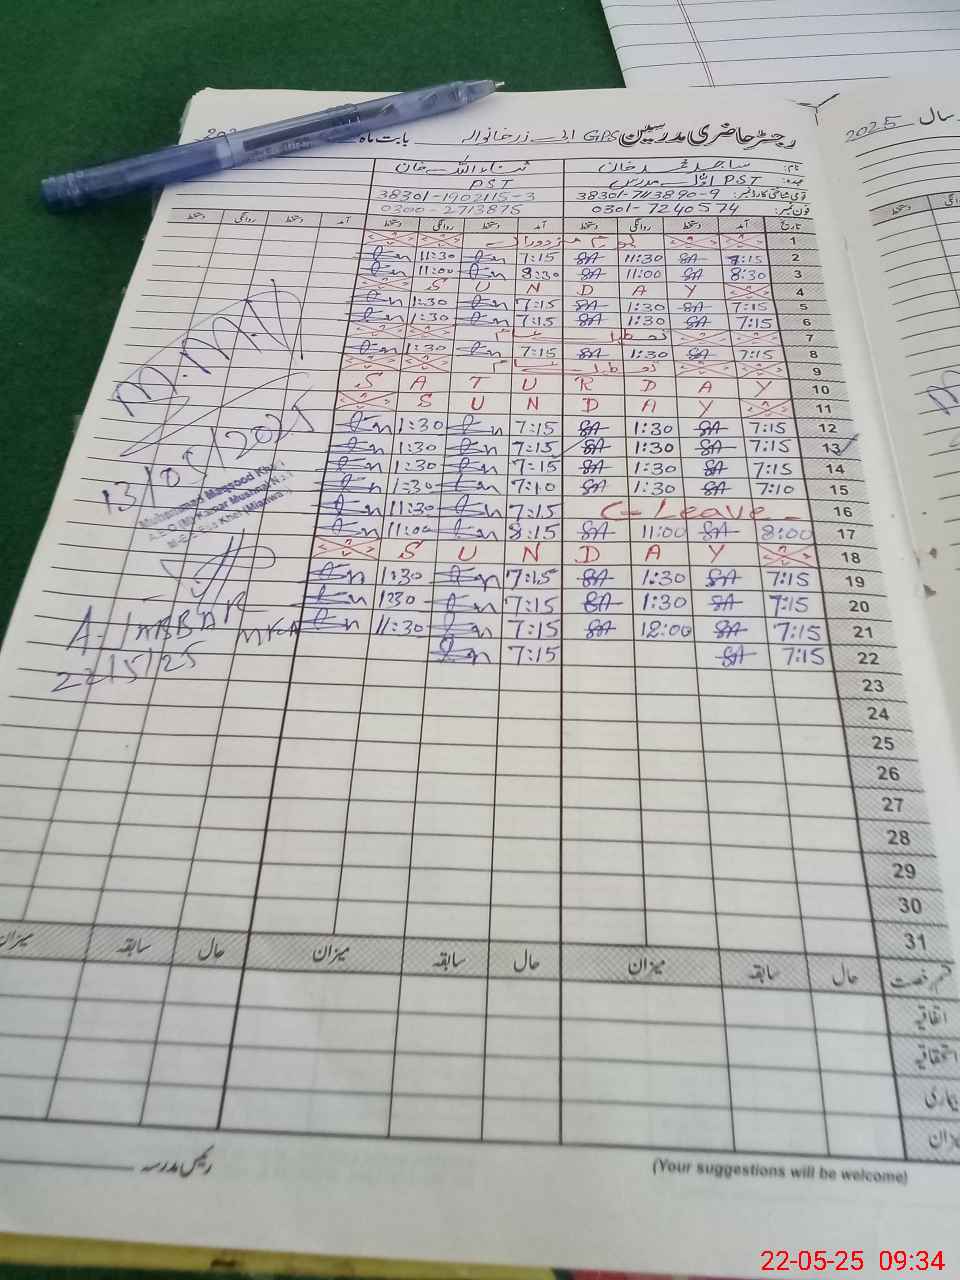 رجسٹر حاضری مدرسین GPS
بابت ماہ
سال 2025
نام: ساجد محمد خان ثناء اللہ خان
عہدہ: PST PST
38301-7113890-9 38301-1902115-3
فون نمبر: 0301-7240574 0300-2713875
تاریخ آمد دستخط روانگی دستخط آمد دستخط روانگی دستخط آمد دستخط روانگی دستخط
1
2 7:15 SA 11:30 SA 7:15 11:30
3 8:30 SA 11:00 SA 8:30 11:00
4 SUNDAY
5 7:15 SA 1:30 SA 7:15 1:30
6 7:15 SA 1:30 SA 7:15 1:30
7
8 7:15 SA 1:30 SA 7:15 1:30
9
10 SATURDAY
11 SUNDAY
12 7:15 SA 1:30 SA 7:15 1:30
13 7:15 SA 1:30 SA 7:15 1:30
14 7:15 SA 1:30 SA 7:15 1:30
15 7:10 SA 1:30 SA 7:10 1:30
16 C-Leave 7:15 11:30
17 8:00 SA 11:00 SA 8:15 11:00
18 SUNDAY
19 7:15 SA 1:30 SA 7:15 1:30
20 7:15 SA 1:30 SA 7:15 1:30
21 7:15 SA 12:00 SA 7:15 11:30
22 7:15 SA 7:15
23
24
25
26
27
28
29
30
31
13/05/2025
Muhammad Maqsood Khan
22/5/25
قسم رخصت حال سابقہ میزان حال سابقہ میزان حال سابقہ میزان
اتفاقیہ
استحقاقیہ
بیماری
میزان
رئیس مدرسہ
(Your suggestions will be welcome)
22-05-25 09:34